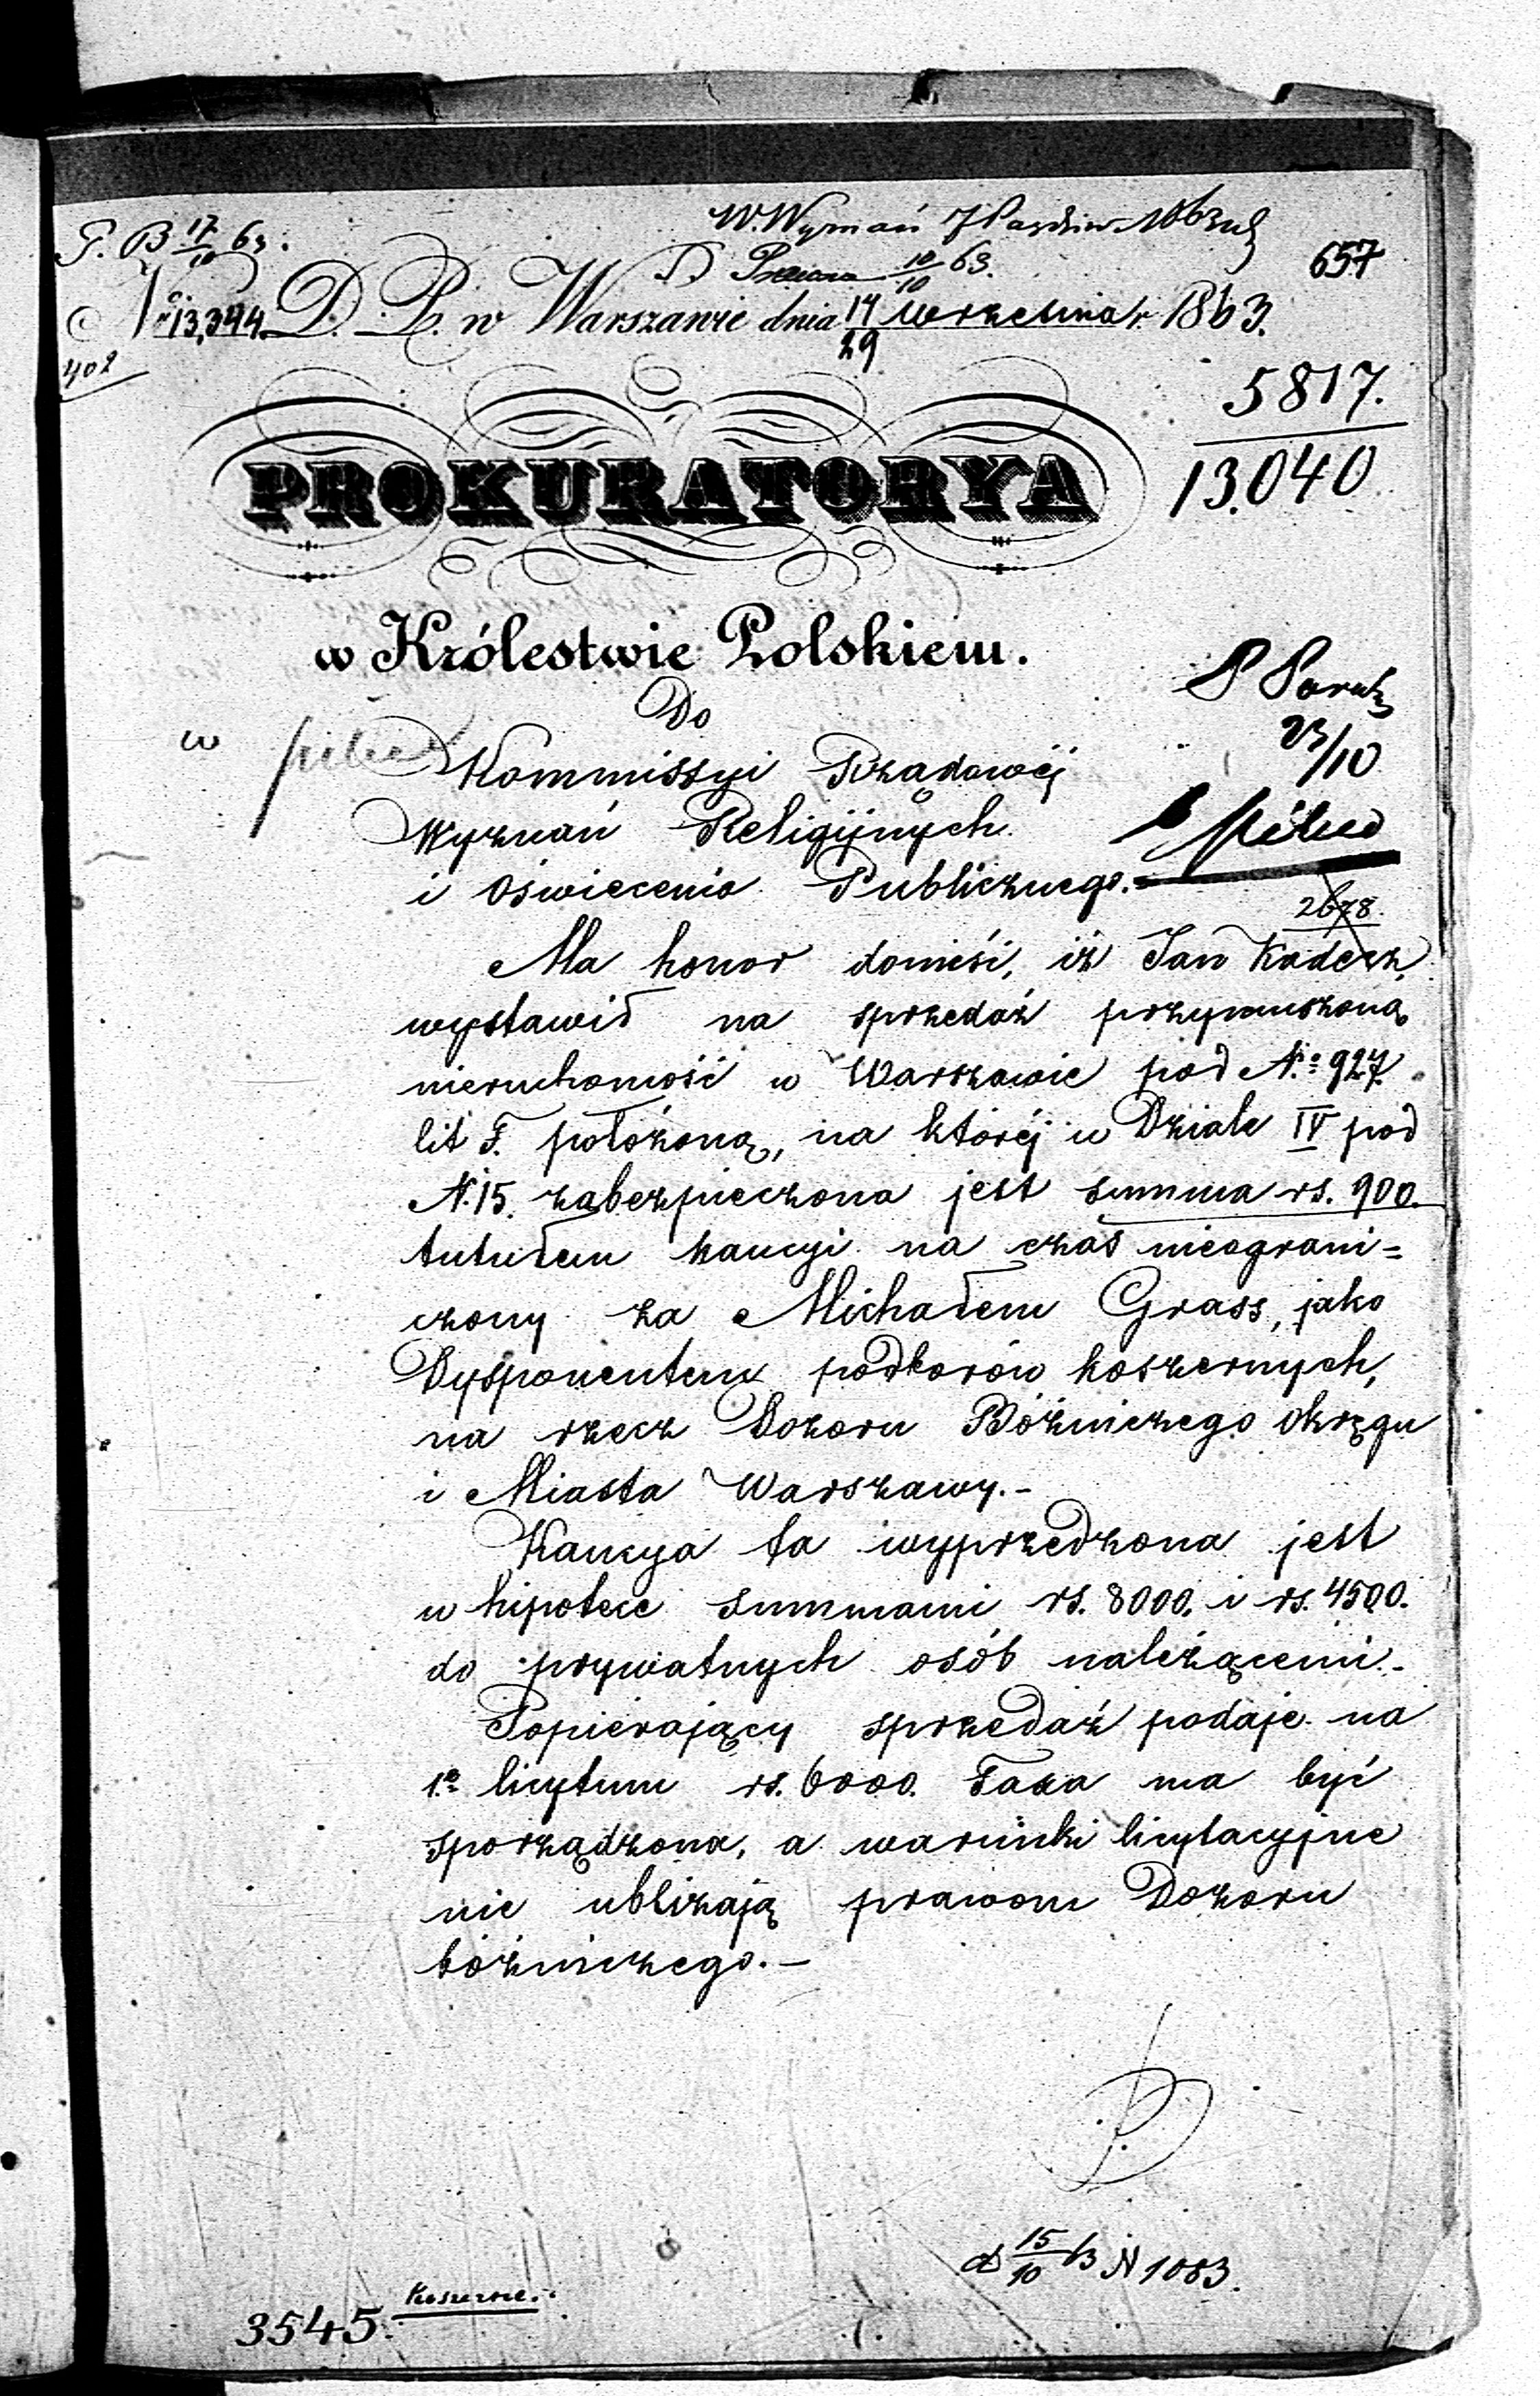 W. Wyznań 7 Paździer. 1863
P. B 17/10 63.
10/10 63.
657
No 13,344. D. P. w Warszawie dnia 17/29 września r. 1863.
402
5817.
13.040
PROKURATORYA
w Królestwie Polskiem.
Do
w pilne Kommissyi Rządowéj
23/10
Wyznań Religijnych
pilno
i Oświecenia Publicznego.
2678.
Ma honor donieść, iż Jan Kaderz,
wystawił na sprzedaż przymuszoną
nieruchomość w Warszawie pod No 927.
lit F. położoną, na któréj w Dziale IV pod
N. 15. zabezpieczona jest summa rs. 900.
tutułem kaucyi na czas nieograni=
czony za Michałem Grass, jako
Dysponentem podborów koszernych,
na rzecz Dozoru Bóżniczego Okręgu
i Miasta Warszawy.-
Kaucya ta wyprzedzona jest
w hipotece summami rs. 8000. i rs. 4500.
do prywatnych osób należącemi.-
Popierający sprzedaż podaje na
1e licytum rs. 6000. Taxa ma być
sporządzona, a warunki licytacyjne
nie ubliżają prawom Dozoru
bóżniczego.-
d 15/10 63 N 1083.
Koszerne.
3545.